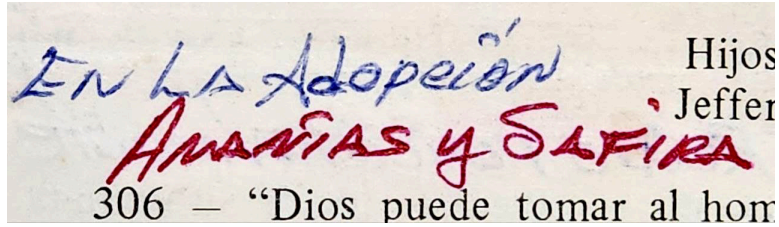 En La Adopción
Hijos
Jeffer
Anañias y Safira
306 — “Dios puede tomar al hom